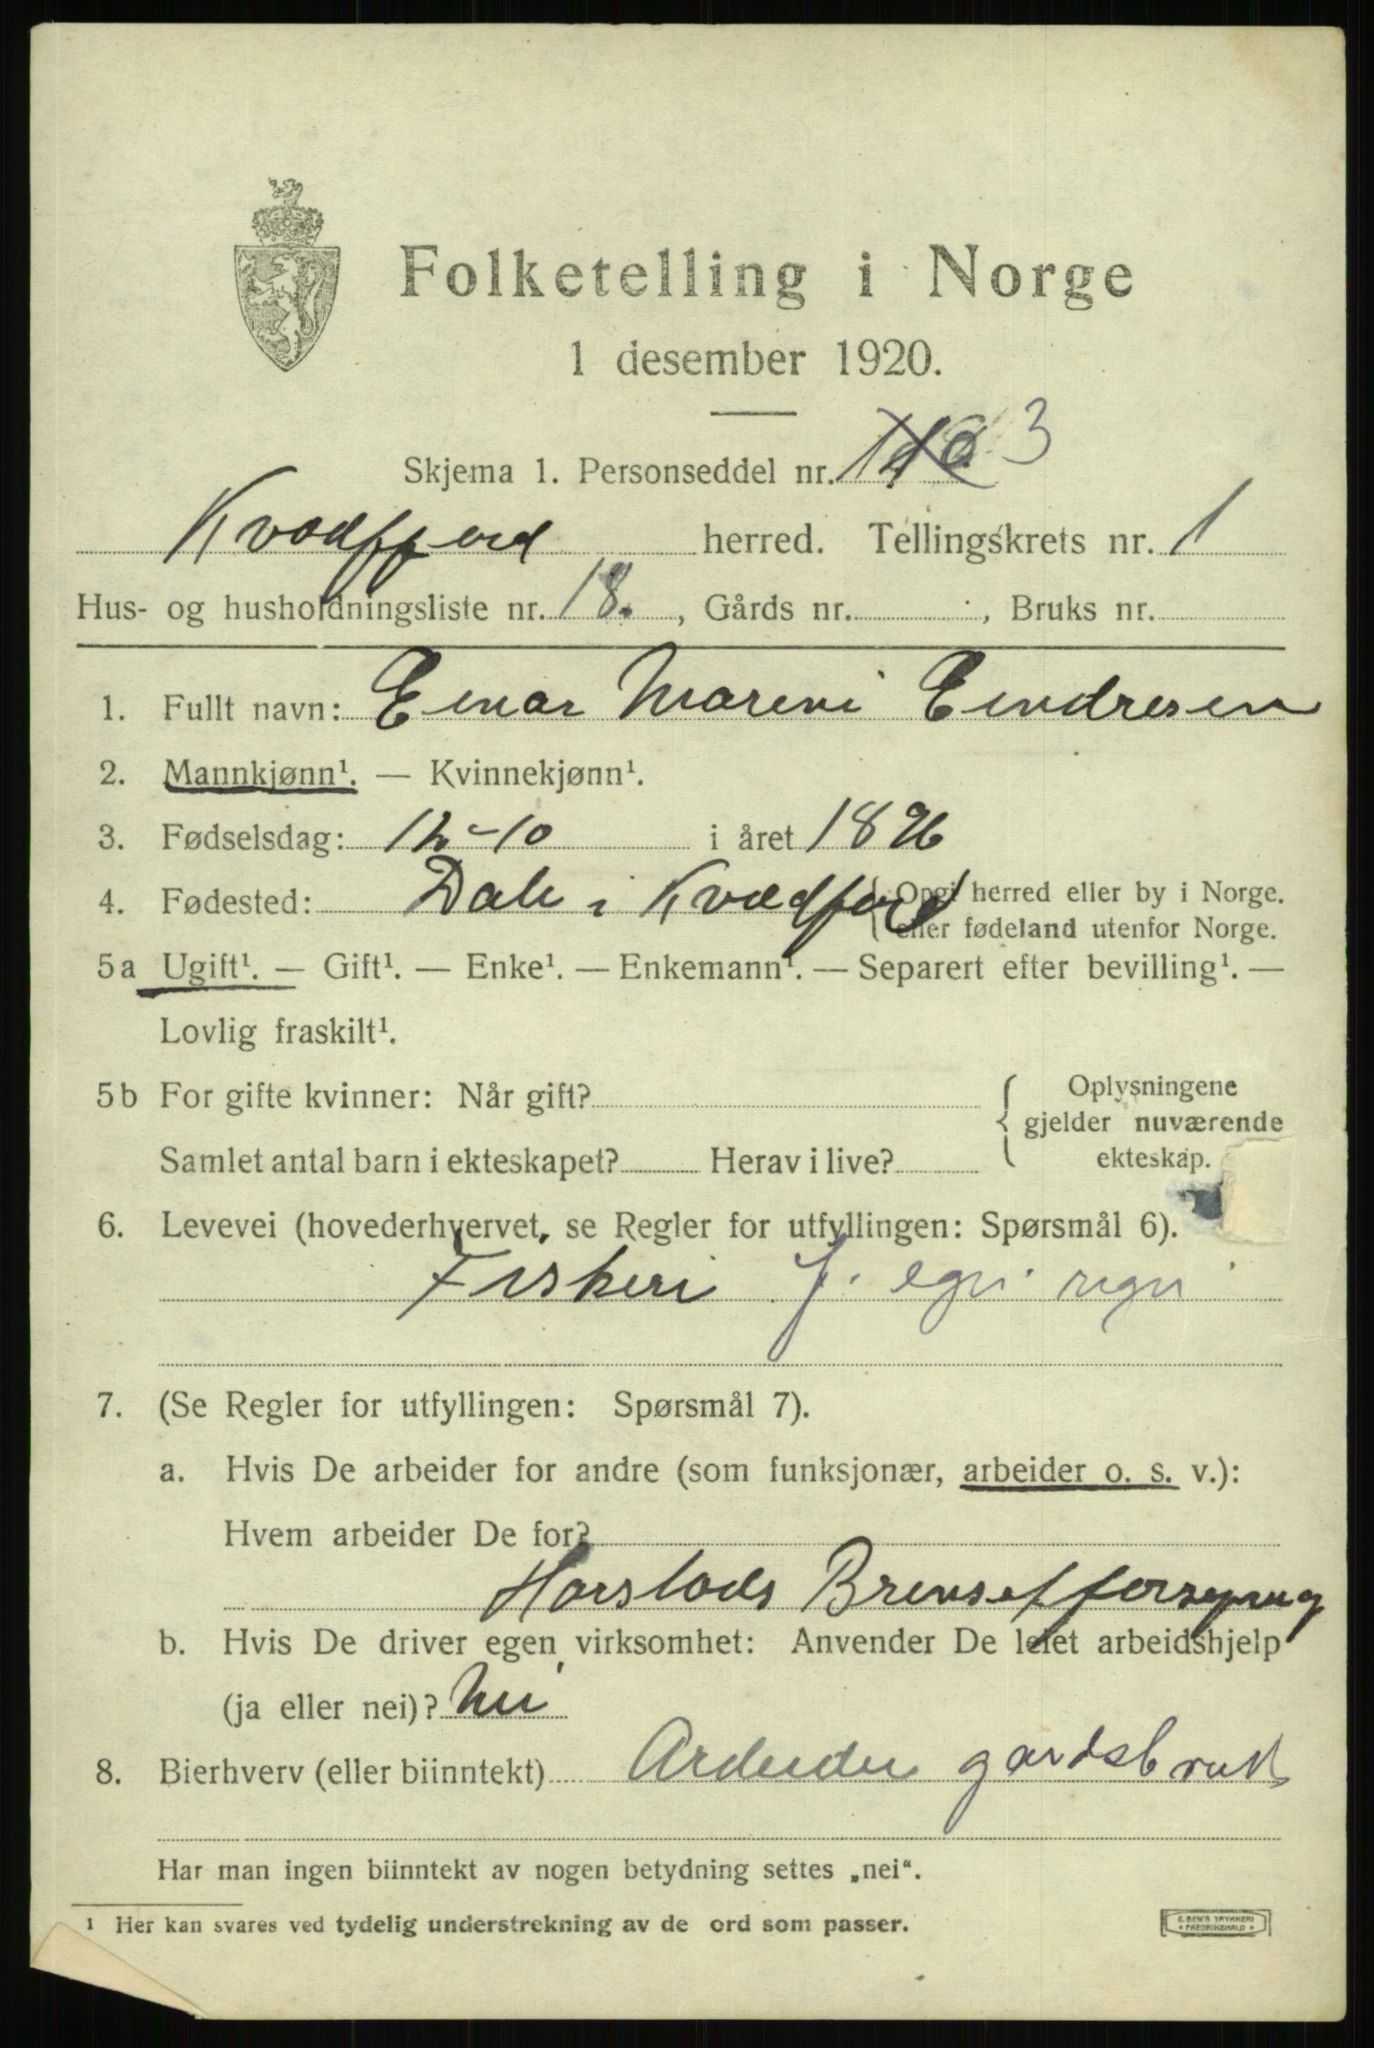 Folketelling i Norge
1 desember 1920.
Skjema 1. Personseddel nr. 3
Kvædfjord herred. Tellingskrets nr. 1
Hus- og husholdningsliste nr. 18. , Gårds nr. , Bruks nr.
1. Fullt navn: Einar Mareni Eindresen
2. Mannkjønn¹. — Kvinnekjønn¹.
3. Fødselsdag: 12-10 i året 1896
4. Fødested: Dale i Kvædfjord { Opgi herred eller by i Norge.
eller fødeland utenfor Norge.
5a Ugift¹. — Gift¹. — Enke¹. — Enkemann¹. — Separert efter bevilling¹. —
Lovlig fraskilt¹.
5b For gifte kvinner: Når gift?
Samlet antal barn i ekteskapet? Herav i live?
{ Oplysningene
gjelder nuværende
ekteskap.
6. Levevei (hovederhvervet, se Regler for utfyllingen: Spørsmål 6).
Fiskeri f. egn regn
7. (Se Regler for utfyllingen: Spørsmål 7).
a. Hvis De arbeider for andre (som funksjonær, arbeider o. s. v.):
Hvem arbeider De for?
Harstads
b. Hvis De driver egen virksomhet: Anvender De leiet arbeidshjelp
(ja eller nei)? Nei
8. Bierhverv (eller biinntekt) gårdsbruk
Har man ingen biinntekt av nogen betydning settes „nei“.
¹ Her kan svares ved tydelig understrekning av de ord som passer.
E. SEM'S TRYKKERI
FREDRIKSHALD